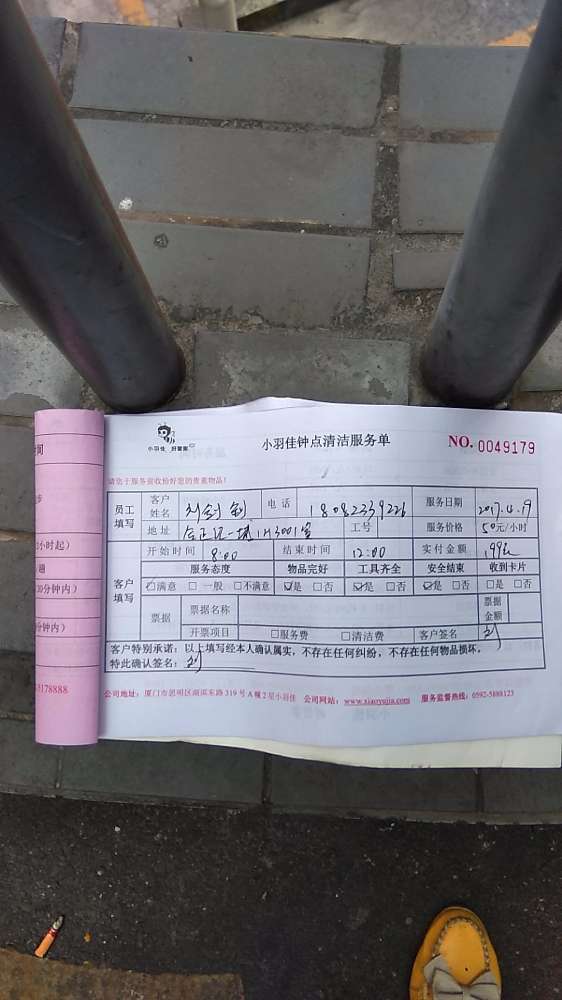 小羽佳 好管家
小羽佳钟点清洁服务单
NO. 0049179
请您于服务前收拾好您的贵重物品!
员工填写 客户姓名 刘剑剑 电话 18082339226 服务日期 2017.4.19
地址 1H3001室 工号 服务价格 50元/小时
客户填写 开始时间 8:00 结束时间 12:00 实付金额 199元
服务态度 物品完好 工具齐全 安全结束 收到卡片
☑满意 □一般 □不满意 ☑是 □否 ☑是 □否 ☑是 □否 □是 □否
票据 票据名称 票据金额
开票项目 □服务费 □清洁费 客户签名 刘
客户特别承诺:以上填写经本人确认属实,不存在任何纠纷,不存在任何物品损坏。
特此确认签名: 刘
公司地址:厦门市思明区湖滨东路 319 号 A 幢 2 层小羽佳 公司网站:www.xiaoyujia.com 服务监督热线:0592-5880123
小时起)
30分钟内)
分钟内)
8178888